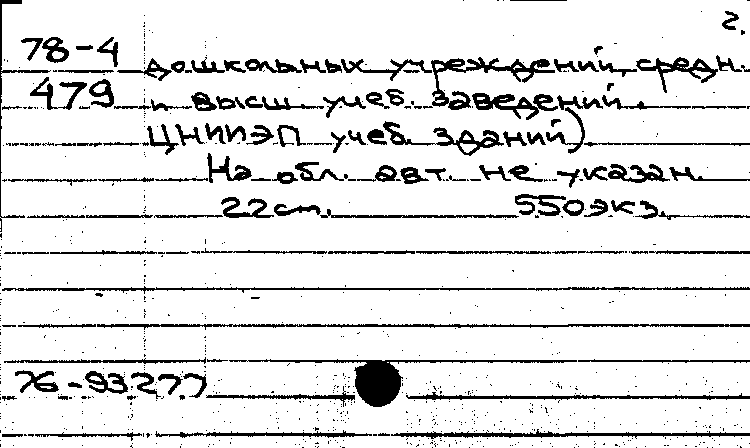 2.
78-4 дошкольных учреждений, средн.
479 и высш. учеб. заведений.
ЦНИИЭП учеб. зданий).
На обл. авт. не указан.
22 см. 550 экз.
76-93277